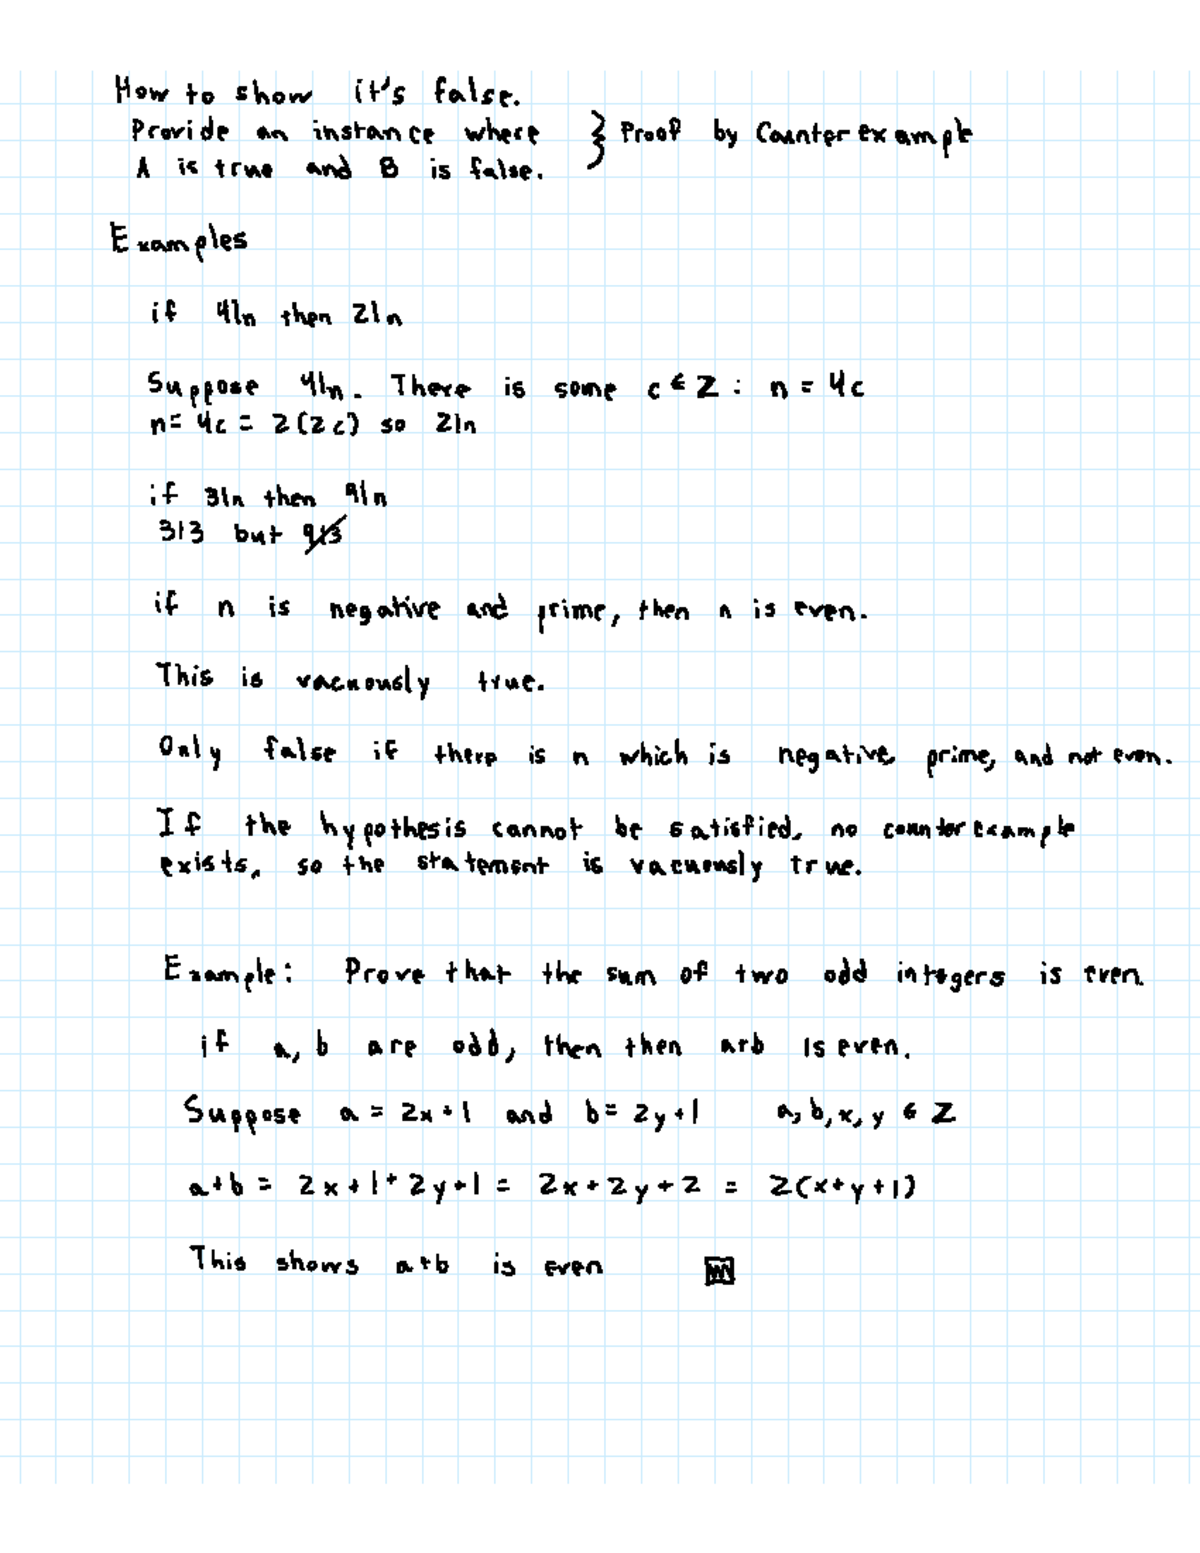 How to show it's false.
Provide an instance where } Proof by Counterexample
A is true and B is false.
Examples
if 4|n then 2|n
Suppose 4|n. There is some c ∈ Z : n = 4c
n = 4c = 2(2c) so 2|n
if 3|n then 9|n
3|3 but 9∤3
if n is negative and prime, then n is even.
This is vacuously true.
Only false if there is n which is negative, prime, and not even.
If the hypothesis cannot be satisfied, no counterexample
exists, so the statement is vacuously true.
Example: Prove that the sum of two odd integers is even.
if a, b are odd, then then a+b is even.
Suppose a = 2x+1 and b = 2y+1 a, b, x, y ∈ Z
a+b = 2x+1+2y+1 = 2x+2y+2 = 2(x+y+1)
This shows a+b is even